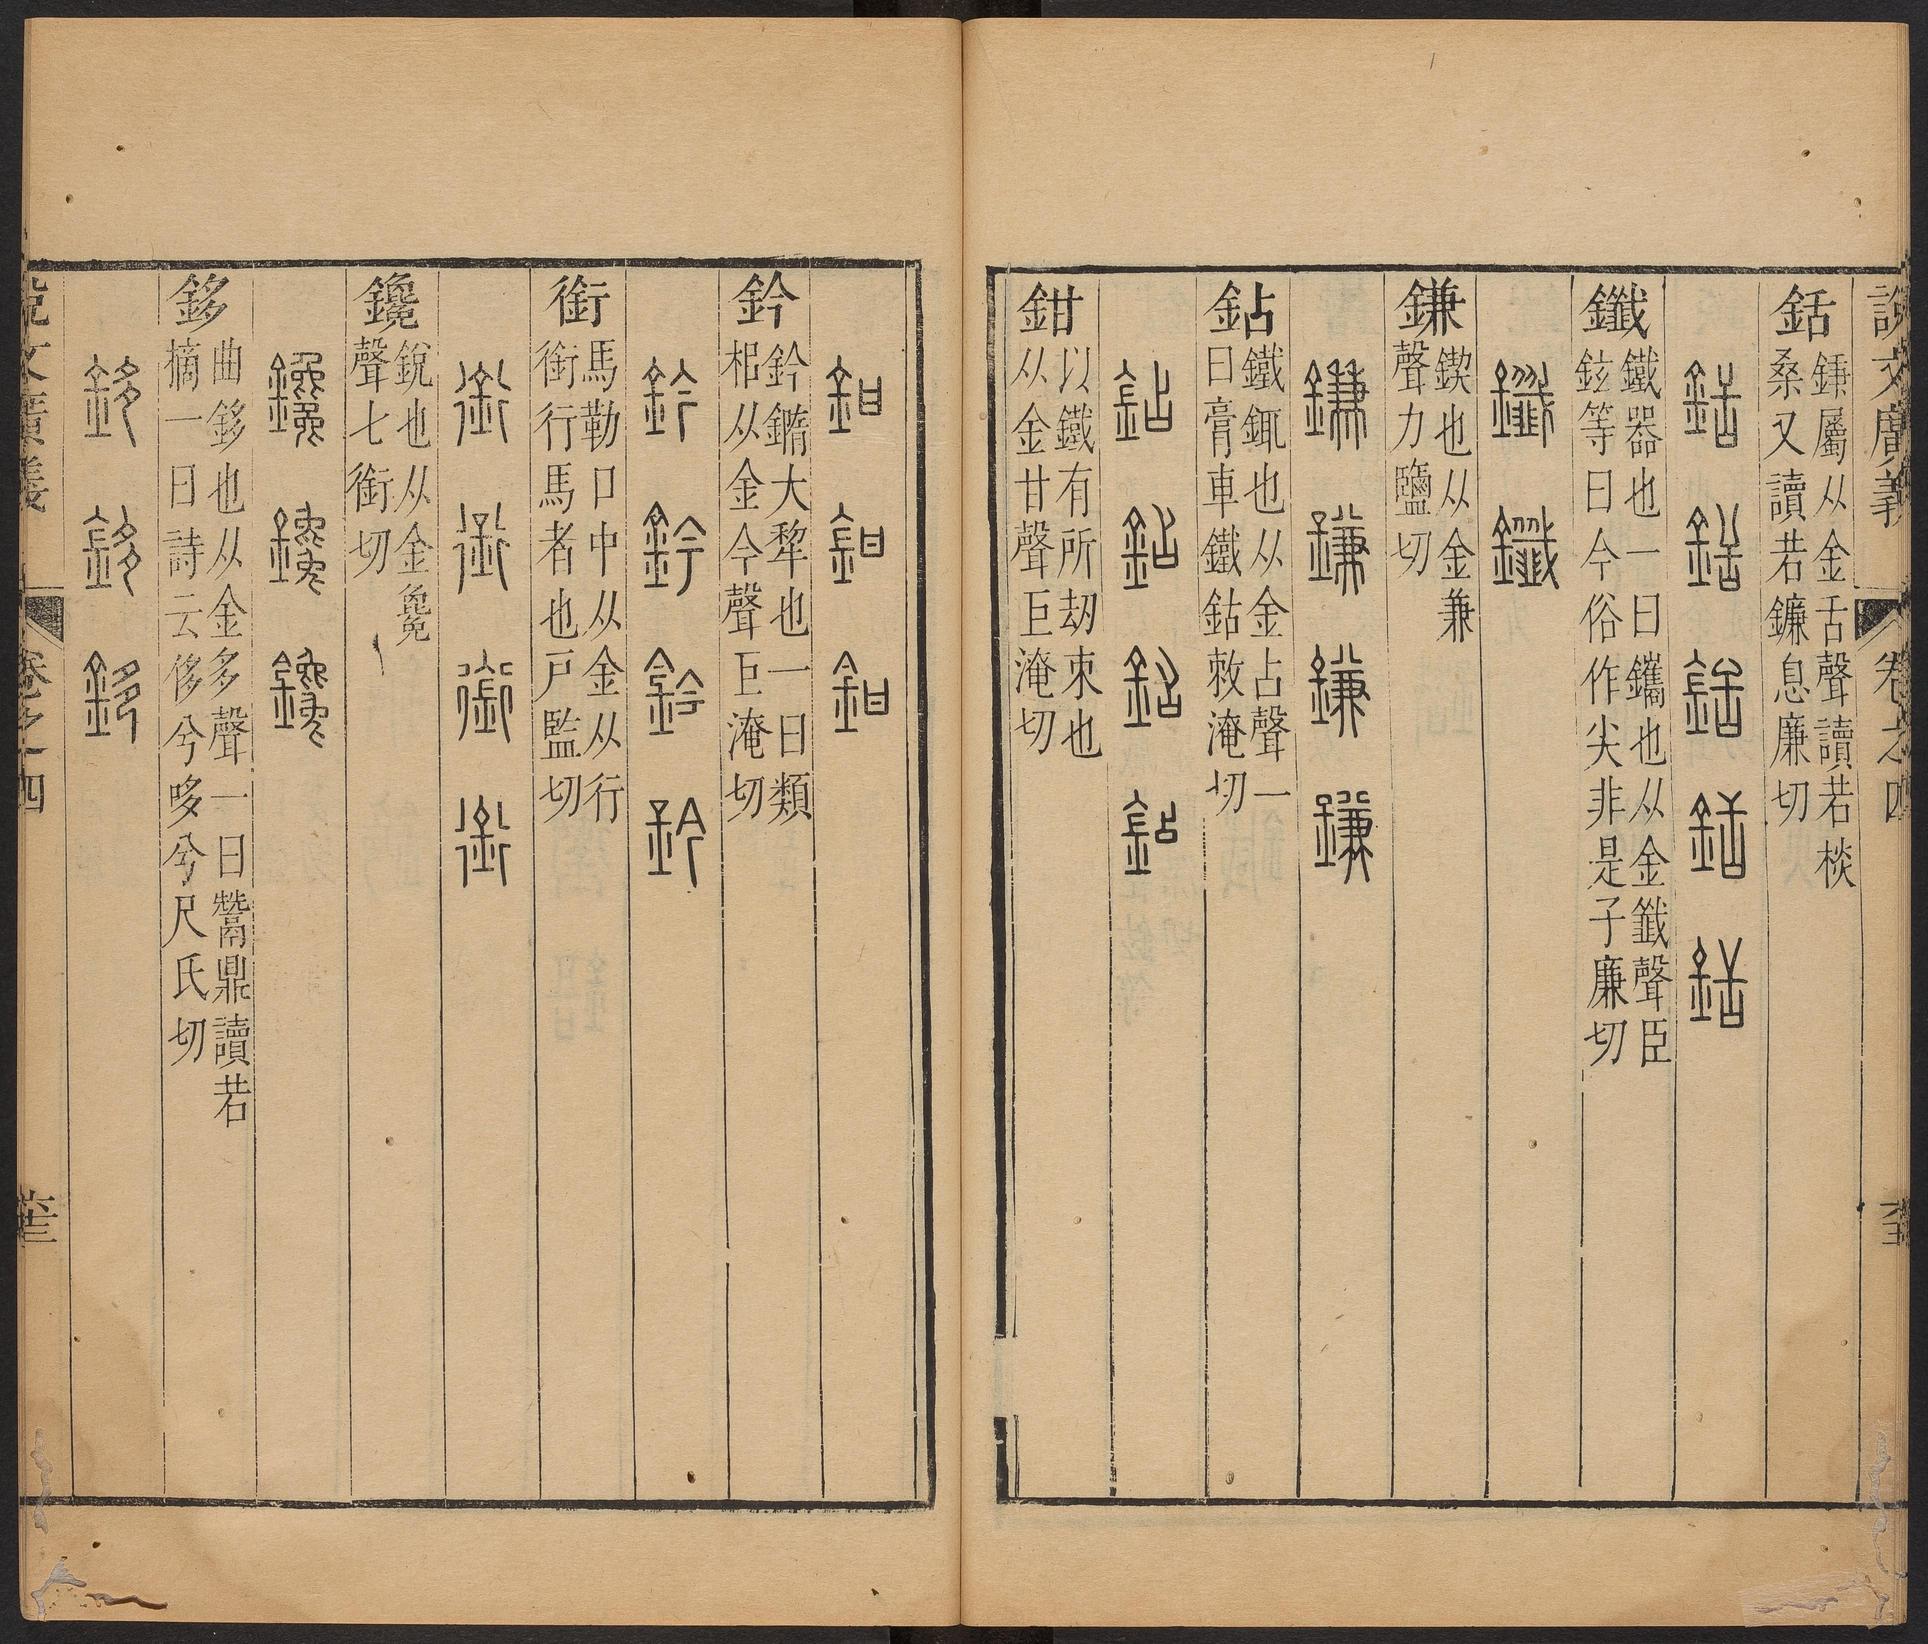 說文廣義
卷之四
銛
鍤屬从金舌聲讀若棪
桑又讀若鐮息廉切
銛銛銛銛銛
鑯
鐵器也一曰鑴也从金韱聲臣
鉉等曰今俗作尖非是子廉切
鑯鑯
鎌
鍥也从金兼
聲力鹽切
鎌鎌鎌鎌
鉆
鐵鉔也从金占聲一
曰膏車鐵鈷敕淹切
鉆鉆鉆鉆
鉗
以鐵有所刼束也
从金甘聲巨淹切
鉗鉗鉗
鈐
鈐𨯳大犂也一曰類
枱从金今聲巨淹切
鈐鈐鈐鈐
銜
馬勒口中从金从行
銜行馬者也戸監切
銜銜銜銜
鑱
銳也从金毚
聲七銜切
鑱鑱鑱
鉹
曲鉹也从金多聲一曰鬵鼎讀若
摘一曰詩云侈兮兮哆兮兮尺氏切
鉹鉹鉹
說文廣義
卷之四